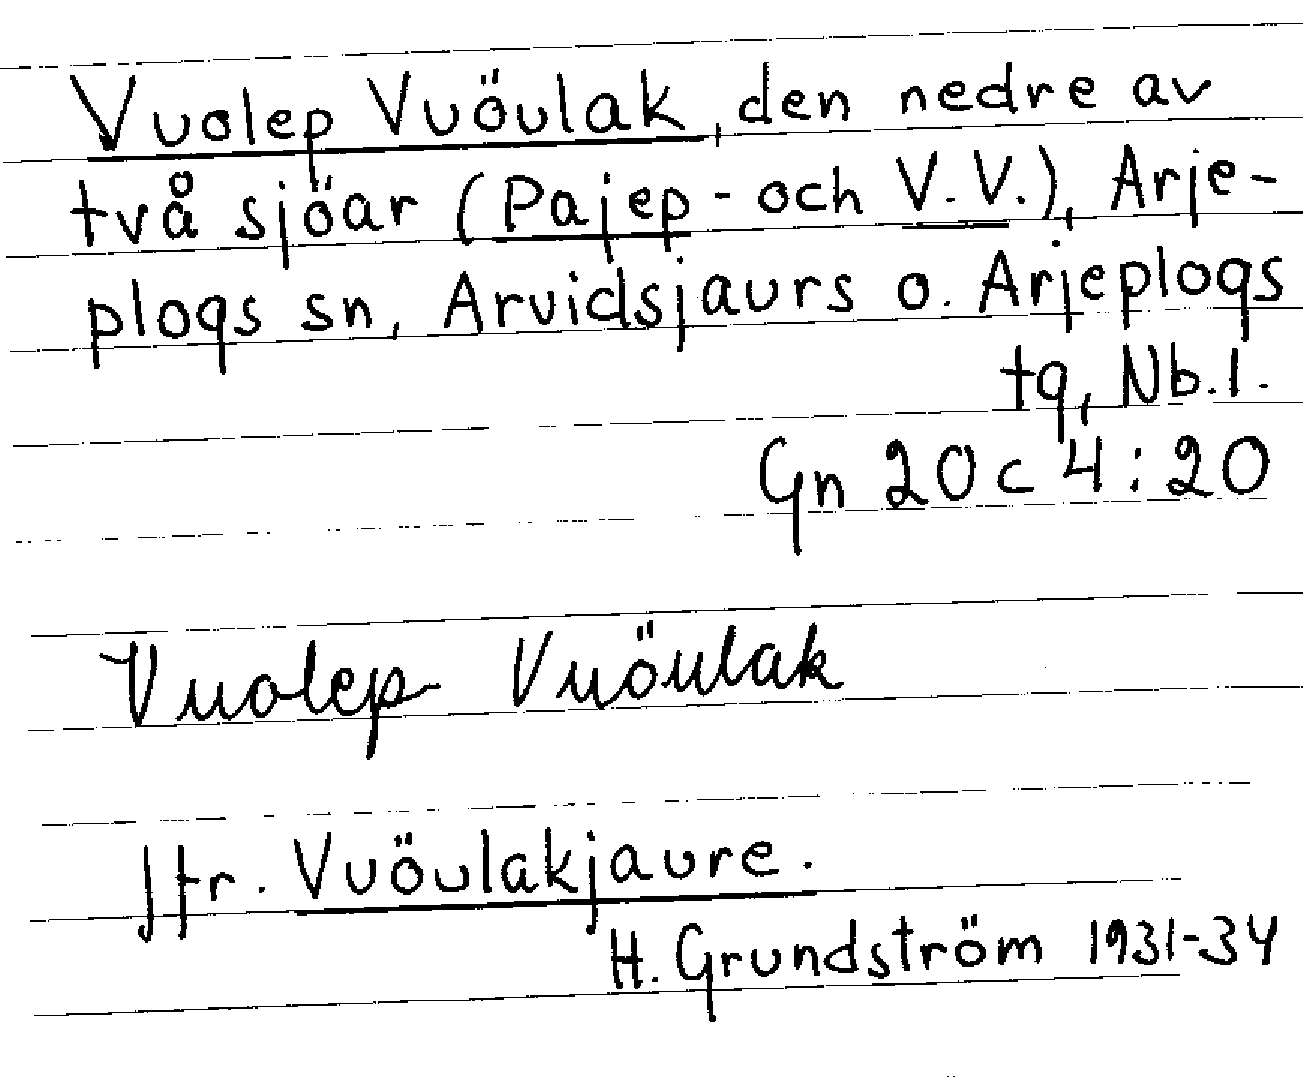 Vuolep Vuöulak, den nedre av
två sjöar (Pajep- och V.V.), Arje-
plogs sn, Arvidsjaurs o. Arjeplogs
tg, Nb.l.
Gn 20c 4:20
Vuolep Vuöulak
Jfr. Vuöulakjaure.
H. Grundström 1931-34